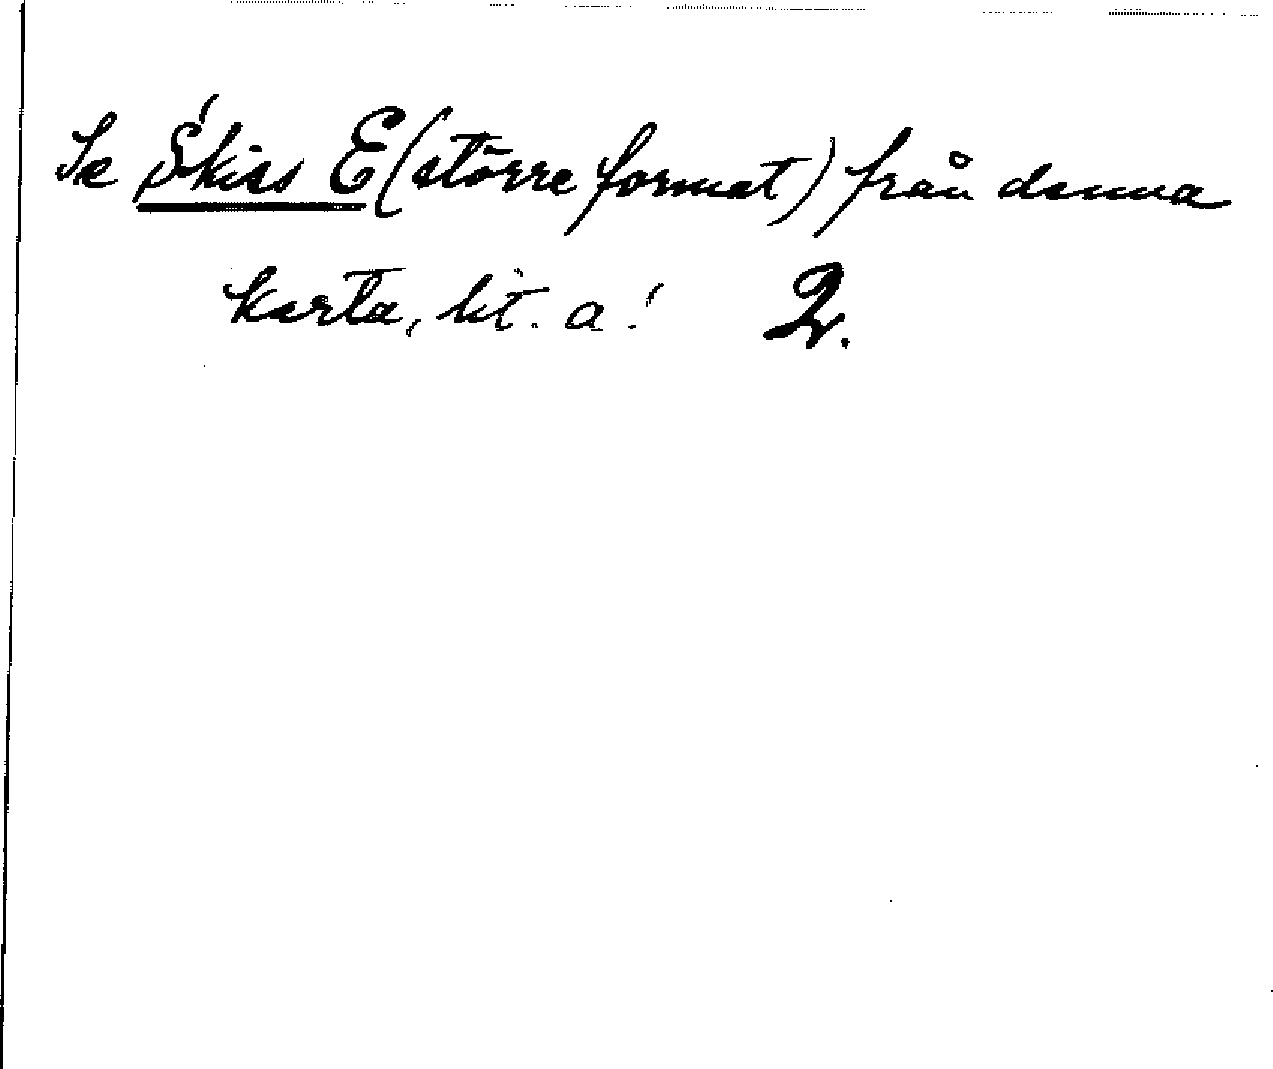 Se Skiss E (större format) från denna
karta, lit. a! 2.